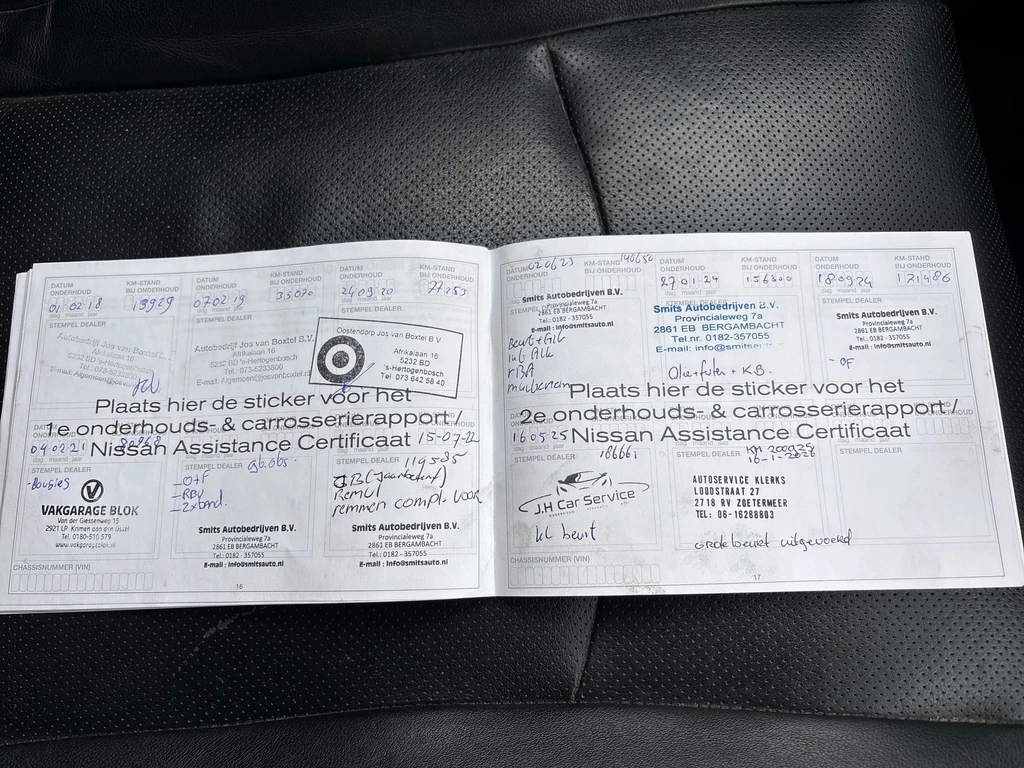 DATUM ONDERHOUD
KM-STAND BIJ ONDERHOUD
01 02 18
19929
dag maand jaar
STEMPEL DEALER
Autobedrijf Jos van Boxtel
Afrikalaan 16
5232 BD 's-Hertogenbosch
Tel. 073-5233800
DATUM ONDERHOUD
KM-STAND BIJ ONDERHOUD
07 02 19
35070
dag maand jaar
STEMPEL DEALER
Autobedrijf Jos van Boxtel B.V.
Afrikalaan 16
5232 BD 's-Hertogenbosch
DATUM ONDERHOUD
KM-STAND BIJ ONDERHOUD
24 09 20
77253
dag maand jaar
STEMPEL DEALER
Oostendorp Jos van Boxtel B.V.
Afrikalaan 16
5232 BD
's-Hertogenbosch
Tel. 073 642 58 40
Plaats hier de sticker voor het
1e onderhouds- & carrosserierapport /
Nissan Assistance Certificaat
04 02 21
STEMPEL DEALER
-Bougies
VAKGARAGE BLOK
Van der Giessenweg 15
2921 LP Krimpen aan den IJssel
Tel. 0180-510 579
www.vakgarageblok.nl
STEMPEL DEALER
-O+F
Smits Autobedrijven B.V.
Provincialeweg 7a
2861 EB BERGAMBACHT
Tel.: 0182 - 357055
E-mail : info@smitsauto.nl
15-07-22
STEMPEL DEALER
119535
remmen compl. voor
Smits Autobedrijven B.V.
Provincialeweg 7a
2861 EB BERGAMBACHT
Tel.: 0182 - 357055
E-mail : info@smitsauto.nl
CHASSISNUMMER (VIN)
16
DATUM ONDERHOUD
02 06 23
KM-STAND BIJ ONDERHOUD
140650
dag maand jaar
Smits Autobedrijven B.V.
Provincialeweg 7a
2861 EB BERGAMBACHT
Tel.: 0182 - 357055
E-mail : info@smitsauto.nl
DATUM ONDERHOUD
KM-STAND BIJ ONDERHOUD
27 01 24
156300
Smits Autobedrijven B.V.
Provincialeweg 7a
2861 EB BERGAMBACHT
Tel.nr. 0182-357055
Olie+filter + K.B.
DATUM ONDERHOUD
KM-STAND BIJ ONDERHOUD
18 09 24
171486
dag maand jaar
STEMPEL DEALER
Smits Autobedrijven B.V.
Provincialeweg 7a
2861 EB BERGAMBACHT
Tel.: 0182 - 357055
E-mail : info@smitsauto.nl
- OF
Plaats hier de sticker voor het
2e onderhouds- & carrosserierapport /
Nissan Assistance Certificaat
16 05 25
dag maand jaar
STEMPEL DEALER
186661
J.H Car Service
kl beurt
STEMPEL DEALER
16-1-2026
AUTOSERVICE KLERKS
LOODSTRAAT 27
2718 RV ZOETERMEER
TEL: 06-16288803
grote beurt uitgevoerd
STEMPEL DEALER
CHASSISNUMMER (VIN)
17